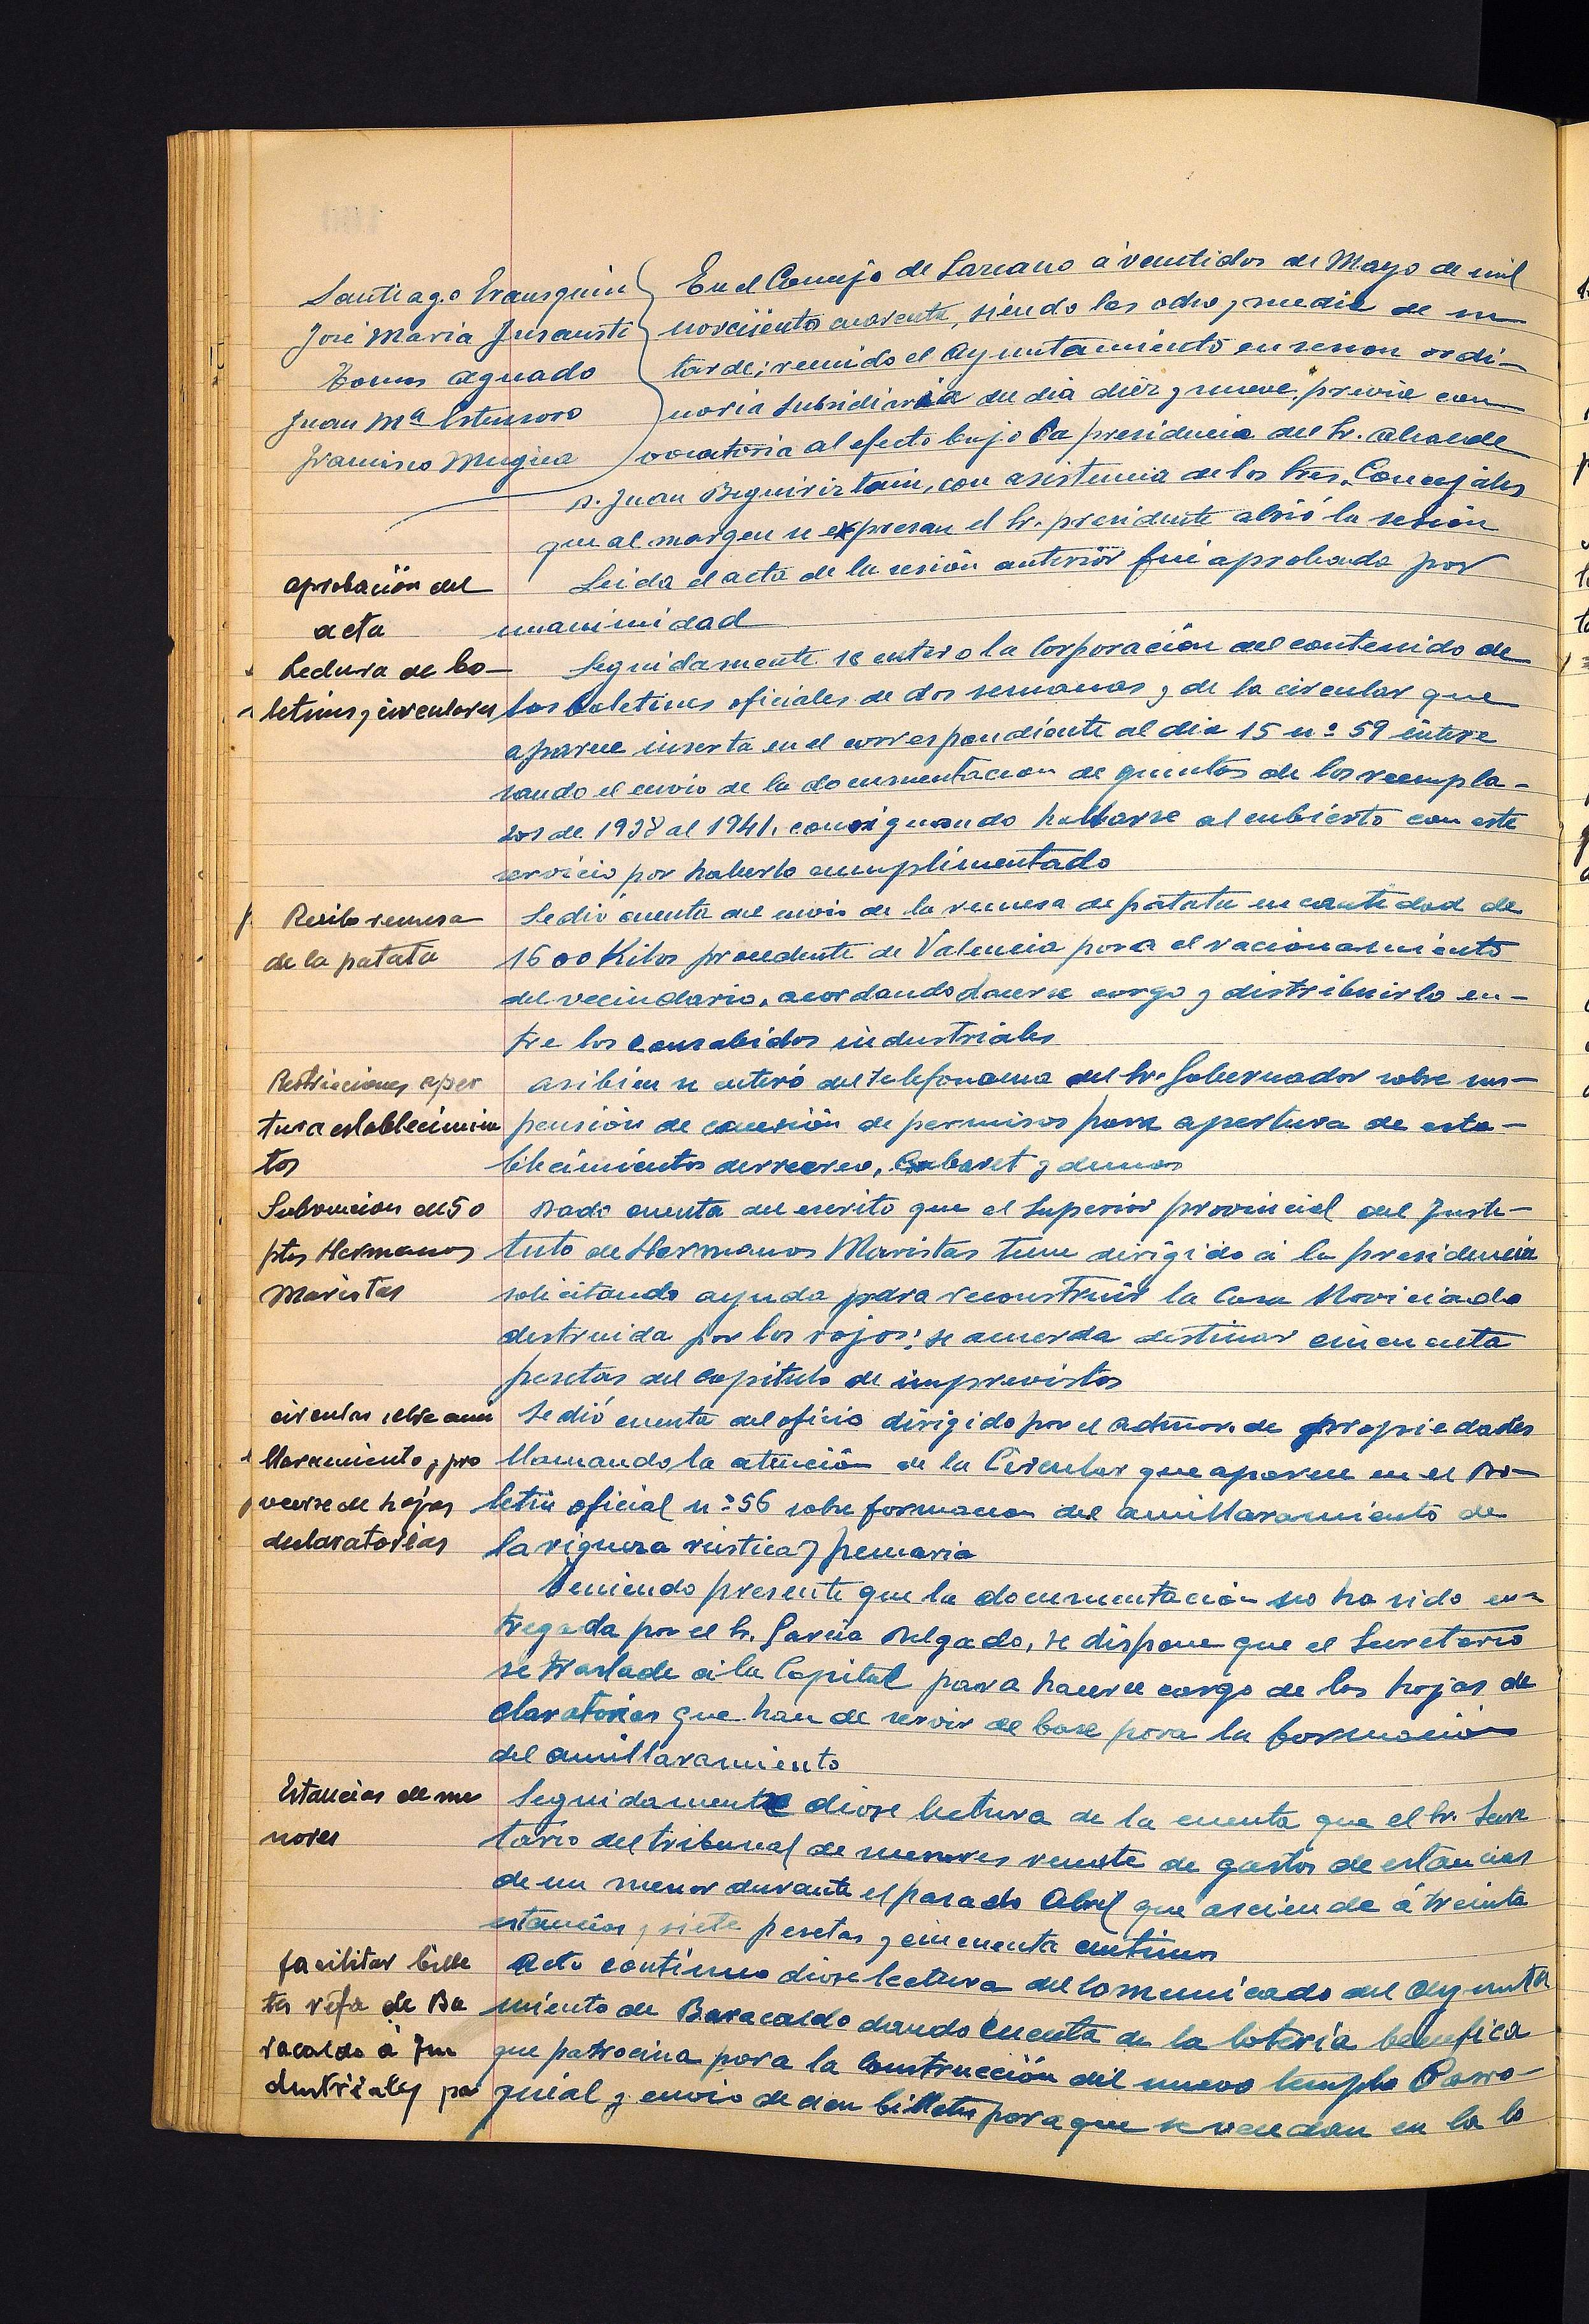 Santiago Irausquin
José Maria Jusausti
Tomas Aguado
Juan Mª Estensoro
Francisco Mugica
En el Concejo de Lazcano á ventidos de Mayo de mil
novecientos cuarenta, siendo las ocho y media de su
tarde; reunido el Ayuntamiento en sesion ordi-
naria subsidiaria del dia diez y nueve, previa con
vocatoria al efecto bajo la presidencia del Sr. Alcalde
D. Juan Beguiristain, con asistencia de los Sres. Concejales
que al margen se expresan el Sr. presidente abrió la sesión
aprobación del
acta
Leida el acta de la sesión anterior fué aprobada por
unanimidad
Lectura de bo-
letines y circulares
Seguidamente se entero la Corporación del contenido de
los boletines oficiales de dos semanas y de la circular que
aparece inserta en el correspondiente al dia 15 nº 59 intere
sando el envio de la documentacion de quintas de los reempla-
zos de 1938 al 1941, consignando hallarse al cubierto con este
servicio por haberlo cumplimentado
Recibo remesa
de la patata
Se dió cuenta del envio de la remesa de patata en cantidad de
1600 Kilos procedente de Valencia para el racionamiento
del vecindario, acordando hacerse cargo y distribuirlo en-
tre los consabidos industriales
Restricciones aper
tura establecimien
tos
Asibien se enteró del telefonema del Sr. Gobernador sobre sus-
pensión de concesión de permisos para apertura de esta-
blecimientos de recreo, Cabaret y demas
Subvencion de 50
ptas Hermanos
Maristas
Dada cuenta del escrito que el Superior provincial del Insti-
tuto de Hermanos Maristas tiene dirigido á la presidencia
solicitando ayuda para reconstruir la Casa Noviciado
destruida por los rojos; se acuerda destinar cincuenta
pesetas del capitulo de imprevistos
circular sobre ami
llaramiento y pro
veerse de hojas
declaratorias
Se dió cuenta del oficio dirigido por el admor. de propiedades
llamando la atención de la Circular que aparece en el Bo-
letin oficial nº 56 sobre formacion del amillaramiento de
la riqueza rústica y pecuaria
Teniendo presente que la documentación no ha sido en-
tregada por el Sr. Garcia Delgado, se dispone que el Secretario
se traslade á la Capital para hacerse cargo de las hojas de
claratorias que han de servir de base para la formación
del amillaramiento
Estancias de me
nores
Seguidamente diose lectura de la cuenta que el Sr. Secre
tario del tribunal de menores remite de gastos de estancias
de un menor durante el pasado Abril que asciende á treinta
estancias y siete pesetas y cincuenta centimos
facilitar bille
tes rifa de Ba
racaldo á In
dustriales pa
Acto continuo diose lectura del comunicado del Ayunta
miento de Baracaldo dando cuenta de la loteria benefica
que patrocina para la construcción del nuevo templo Parro-
quial y envio de cien billetes para que se vendan en la lo